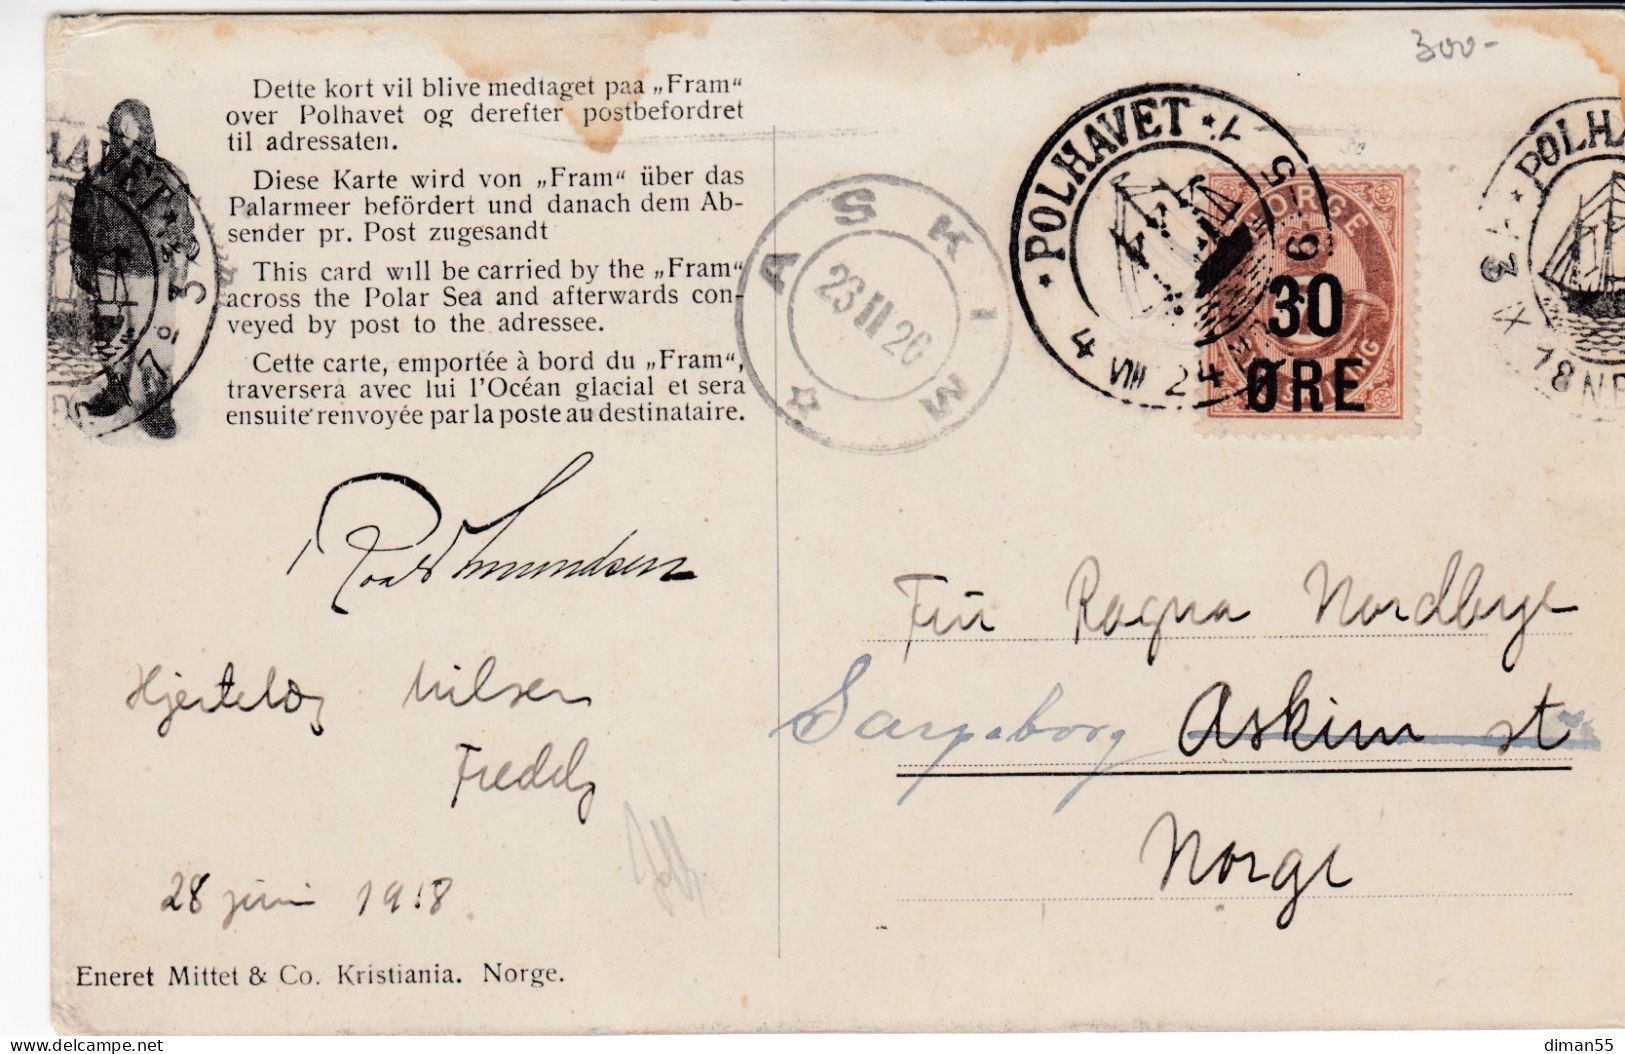 300-
Dette kort vil blive medtaget paa „Fram“
over Polhavet og derefter postbefordret
til adressaten.
Diese Karte wird von „Fram“ über das
Palarmeer befördert und danach dem Ab-
sender pr. Post zugesandt
This card will be carried by the „Fram“
across the Polar Sea and afterwards con-
veyed by post to the adressee.
Cette carte, emportée à bord du „Fram“,
traversera avec lui l'Océan glacial et sera
ensuite renvoyée par la poste au destinataire.
ASKIM
23 II 26
POLHAVET
4 VIII 24
NORGE
30
ØRE
POLHA
Roald Amundsen
Hjertelig hilsen
Freddy
28 juni 1918
Ragna Nordbye
Sarpsborg Askim st
Norge
Eneret Mittet & Co. Kristiania. Norge.
diman55